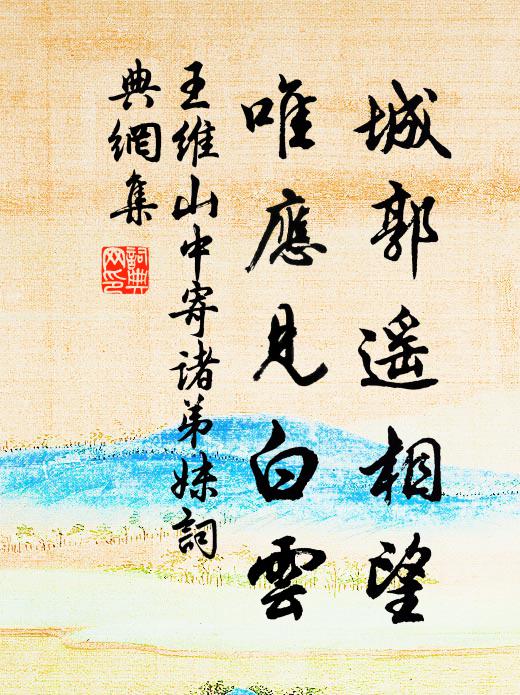 城郭遥相望
唯應見白雲
王維山中寄諸弟妹詞
典網集
詞典
网印